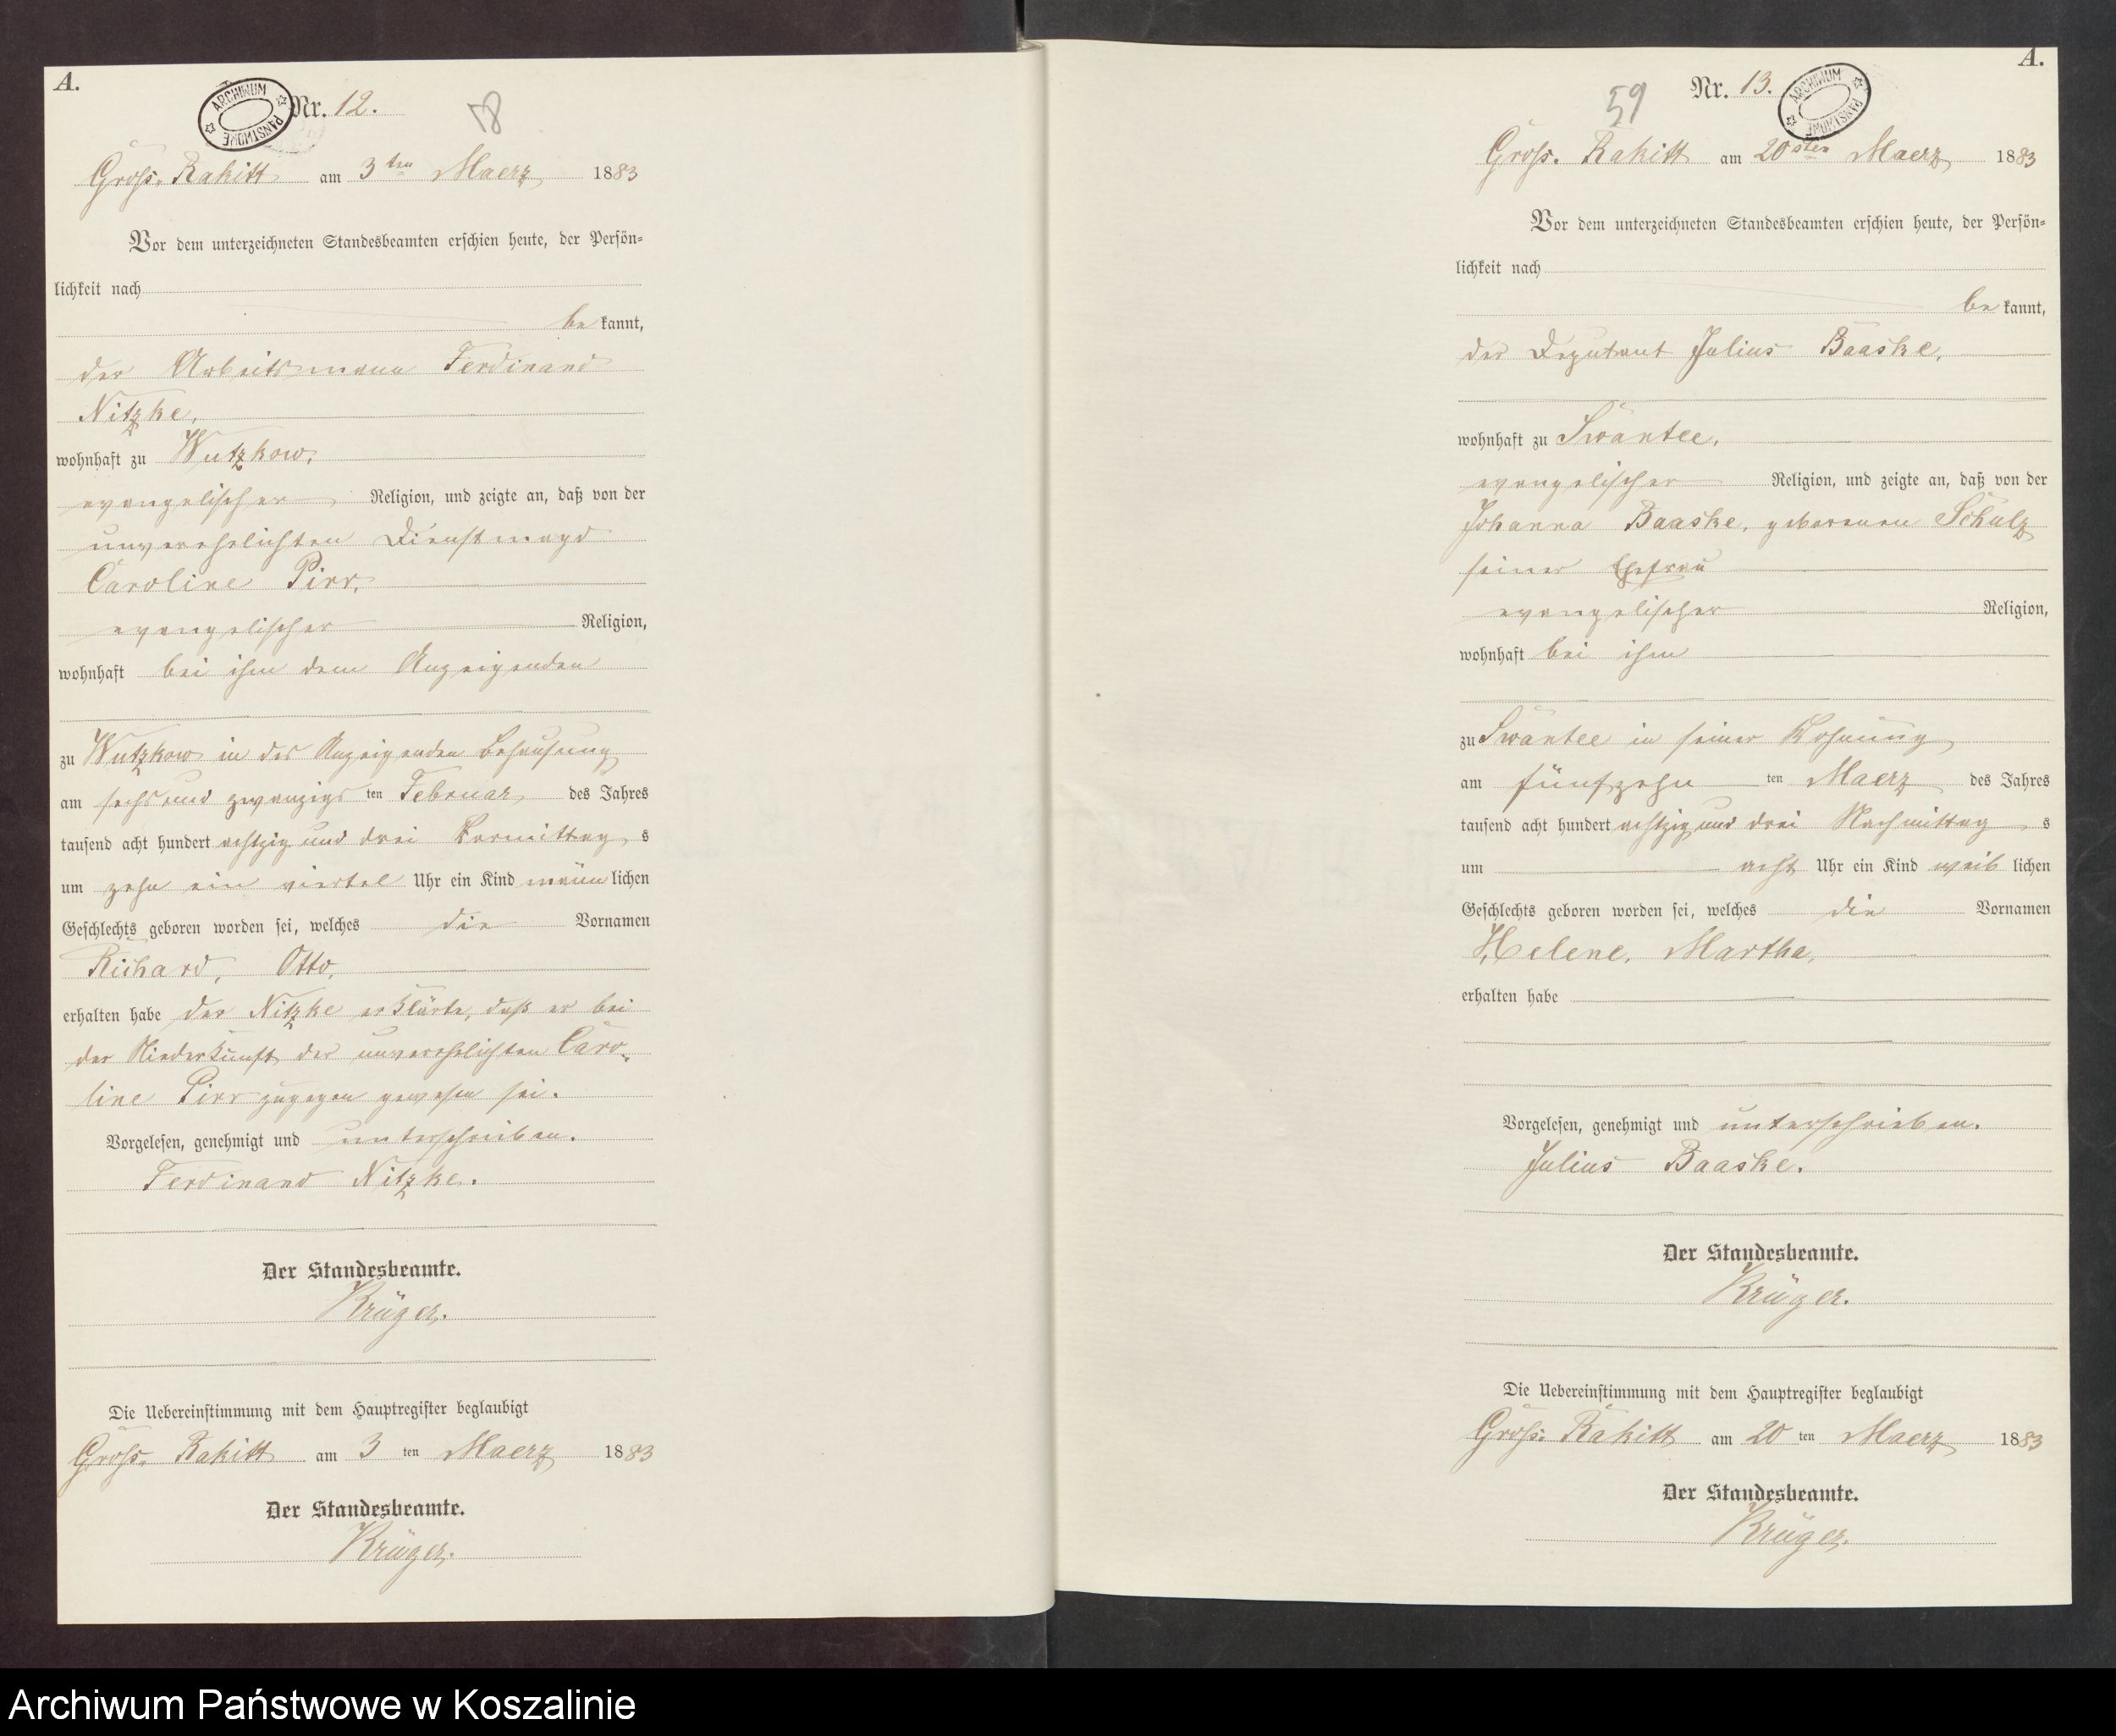 A.
ARCHIWUM PAŃSTWOWE
Nr. 12.
58
Gross. Rakitt am 3ten Maerz 1883
Vor dem unterzeichneten Standesbeamten erschien heute, der Persön=
lichkeit nach
be kannt,
der Arbeitsmann Ferdinand
Nitzke,
wohnhaft zu Wutzkow,
evangelischer Religion, und zeigte an, daß von der
unverehelichten Dienstmagd
Caroline Pirr,
evangelischer Religion,
wohnhaft bei ihm dem Anzeigenden
zu Wutzkow in des Anzeigenden Behausung
am sechs und zwanzigs ten Februar des Jahres
tausend acht hundert achtzig und drei Vormittag s
um zehn ein viertel Uhr ein Kind männ lichen
Geschlechts geboren worden sei, welches die Vornamen
Richard, Otto,
erhalten habe der Nitzke erklärte, daß er bei
der Niederkunft der unverehelichten Caro-
line Pirr zugegen gewesen sei.
Vorgelesen, genehmigt und unterschrieben.
Ferdinand Nitzke.
Der Standesbeamte.
Krüger.
Die Uebereinstimmung mit dem Hauptregister beglaubigt
Gross. Rakitt am 3 ten Maerz 1883
Der Standesbeamte.
Krüger.
A.
Nr. 13.
ARCHIWUM PAŃSTWOWE
59
Gross. Rakitt am 20sten Maerz 1883
Vor dem unterzeichneten Standesbeamten erschien heute, der Persön=
lichkeit nach
be kannt,
der Deputant Julius Baaske,
wohnhaft zu Swantee,
evangelischer Religion, und zeigte an, daß von der
Johanna Baaske, geborenen Schulz
seiner Ehefrau
evangelischer Religion,
wohnhaft bei ihm
zu Swantee in seiner Wohnung
am fünfzehn ten Maerz des Jahres
tausend acht hundert achtzig und drei Nachmittag s
um acht Uhr ein Kind weib lichen
Geschlechts geboren worden sei, welches die Vornamen
Helene, Martha,
erhalten habe
Vorgelesen, genehmigt und unterschrieben.
Julius Baaske.
Der Standesbeamte.
Krüger.
Die Uebereinstimmung mit dem Hauptregister beglaubigt
Gross: Rakitt am 20 ten Maerz 1883
Der Standesbeamte.
Krüger.
Archiwum Państwowe w Koszalinie